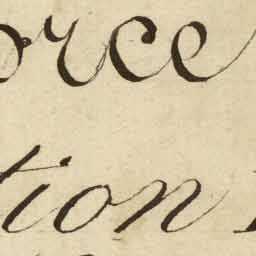 orce
tion